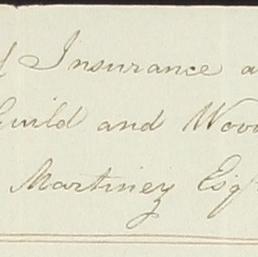 Insurance a
Guild and Wood
Martinez Esqr